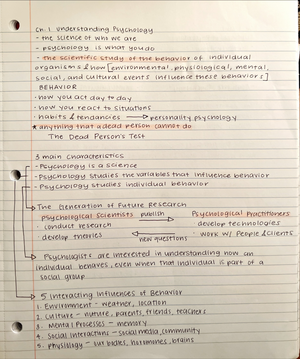 Ch. 1 Understanding Psychology
- the science of who we are
- psychology is what you do
- the scientific study of the behavior of individual
organisms & how [environmental, physiological, mental,
social, and cultural events influence these behaviors]
BEHAVIOR
- how you act day to day
- how you react to situations
- habits & tendancies → personality psychology
* anything that a dead person cannot do
The Dead Person's Test
3 main characteristics
- Psychology is a science
- Psychology studies the variables that influence behavior
- Psychology studies individual behavior
The Generation of Future Research
Psychological Scientists publish Psychological Practitioners
· conduct research develop technologies
develop theories new questions · work w/ People & Clients
Psychologists are interested in understanding how an
individual behaves, even when that individual is part of a
social group
5 Interacting Influences of Behavior
1. Environment - weather, location
2. Culture - nurture, parents, friends, teachers
3. Mental Processes - memory
4. Social Interactions - social media, community
5. Physiology - our bodies, hormones, brains